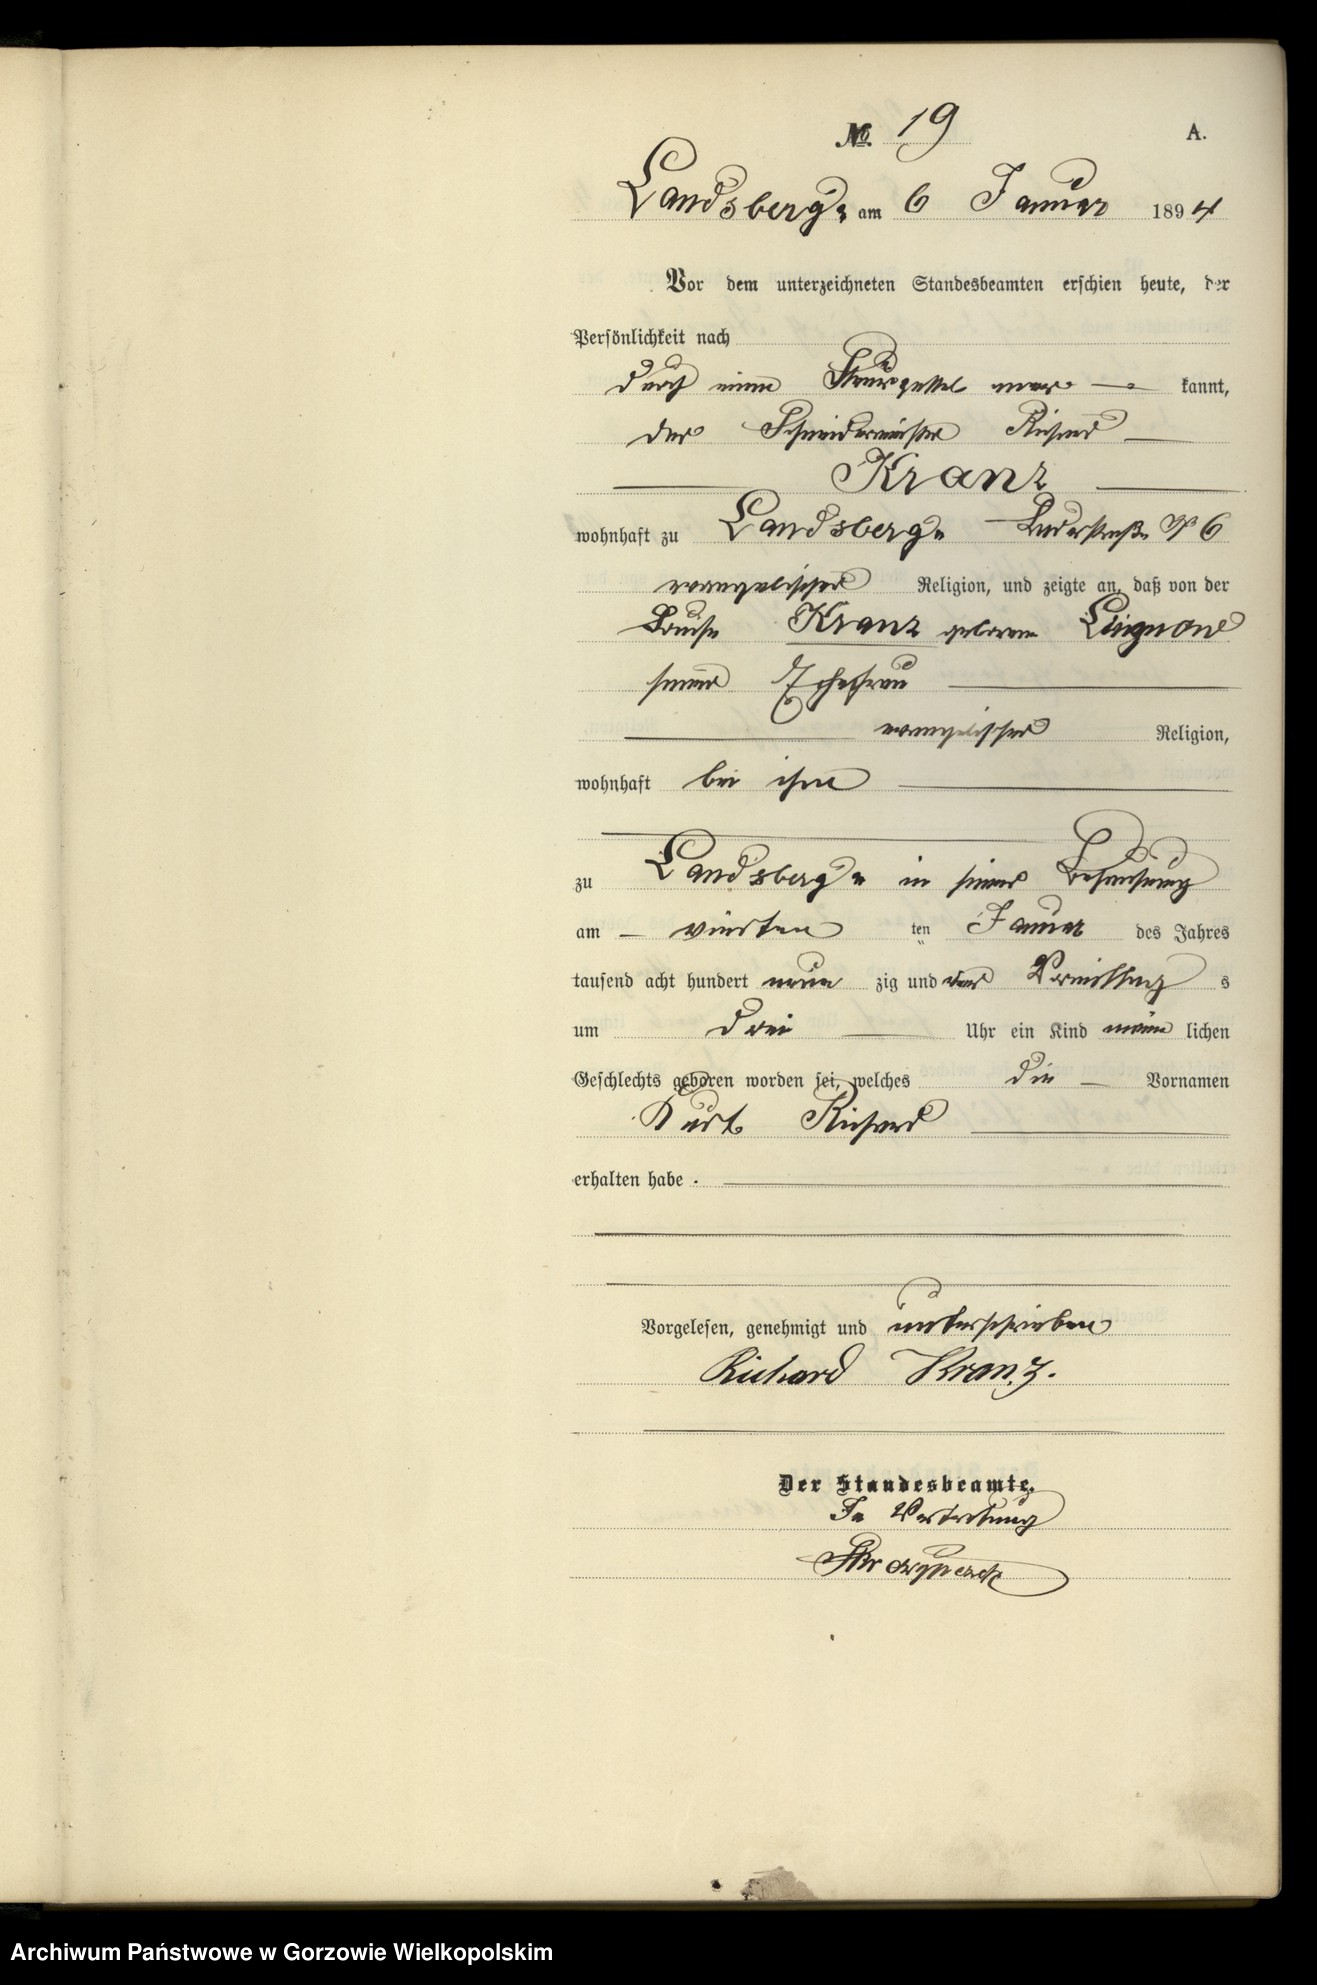 № 19 A.
Landsberg a am 6 Januar 1894
Vor dem unterzeichneten Standesbeamten erschien heute, der
Persönlichkeit nach
durch einen Steuerzettel aner kannt,
der Schneidermeister Richard
Kranz
wohnhaft zu Landsberg a № 6
evangelischer Religion, und zeigte an, daß von der
Louise Kranz geborene
seiner Ehefrau
evangelischer Religion,
wohnhaft bei ihm
zu Landsberg a in seiner Behausung
am vierten ten Januar des Jahres
tausend acht hundert neun zig und vier Vormittag s
um drei Uhr ein Kind männ lichen
Geschlechts geboren worden sei, welches die Vornamen
Kurt Richard
erhalten habe.
Vorgelesen, genehmigt und unterschrieben
Richard Kranz.
Der Standesbeamte.
In Vertretung
Archiwum Państwowe w Gorzowie Wielkopolskim